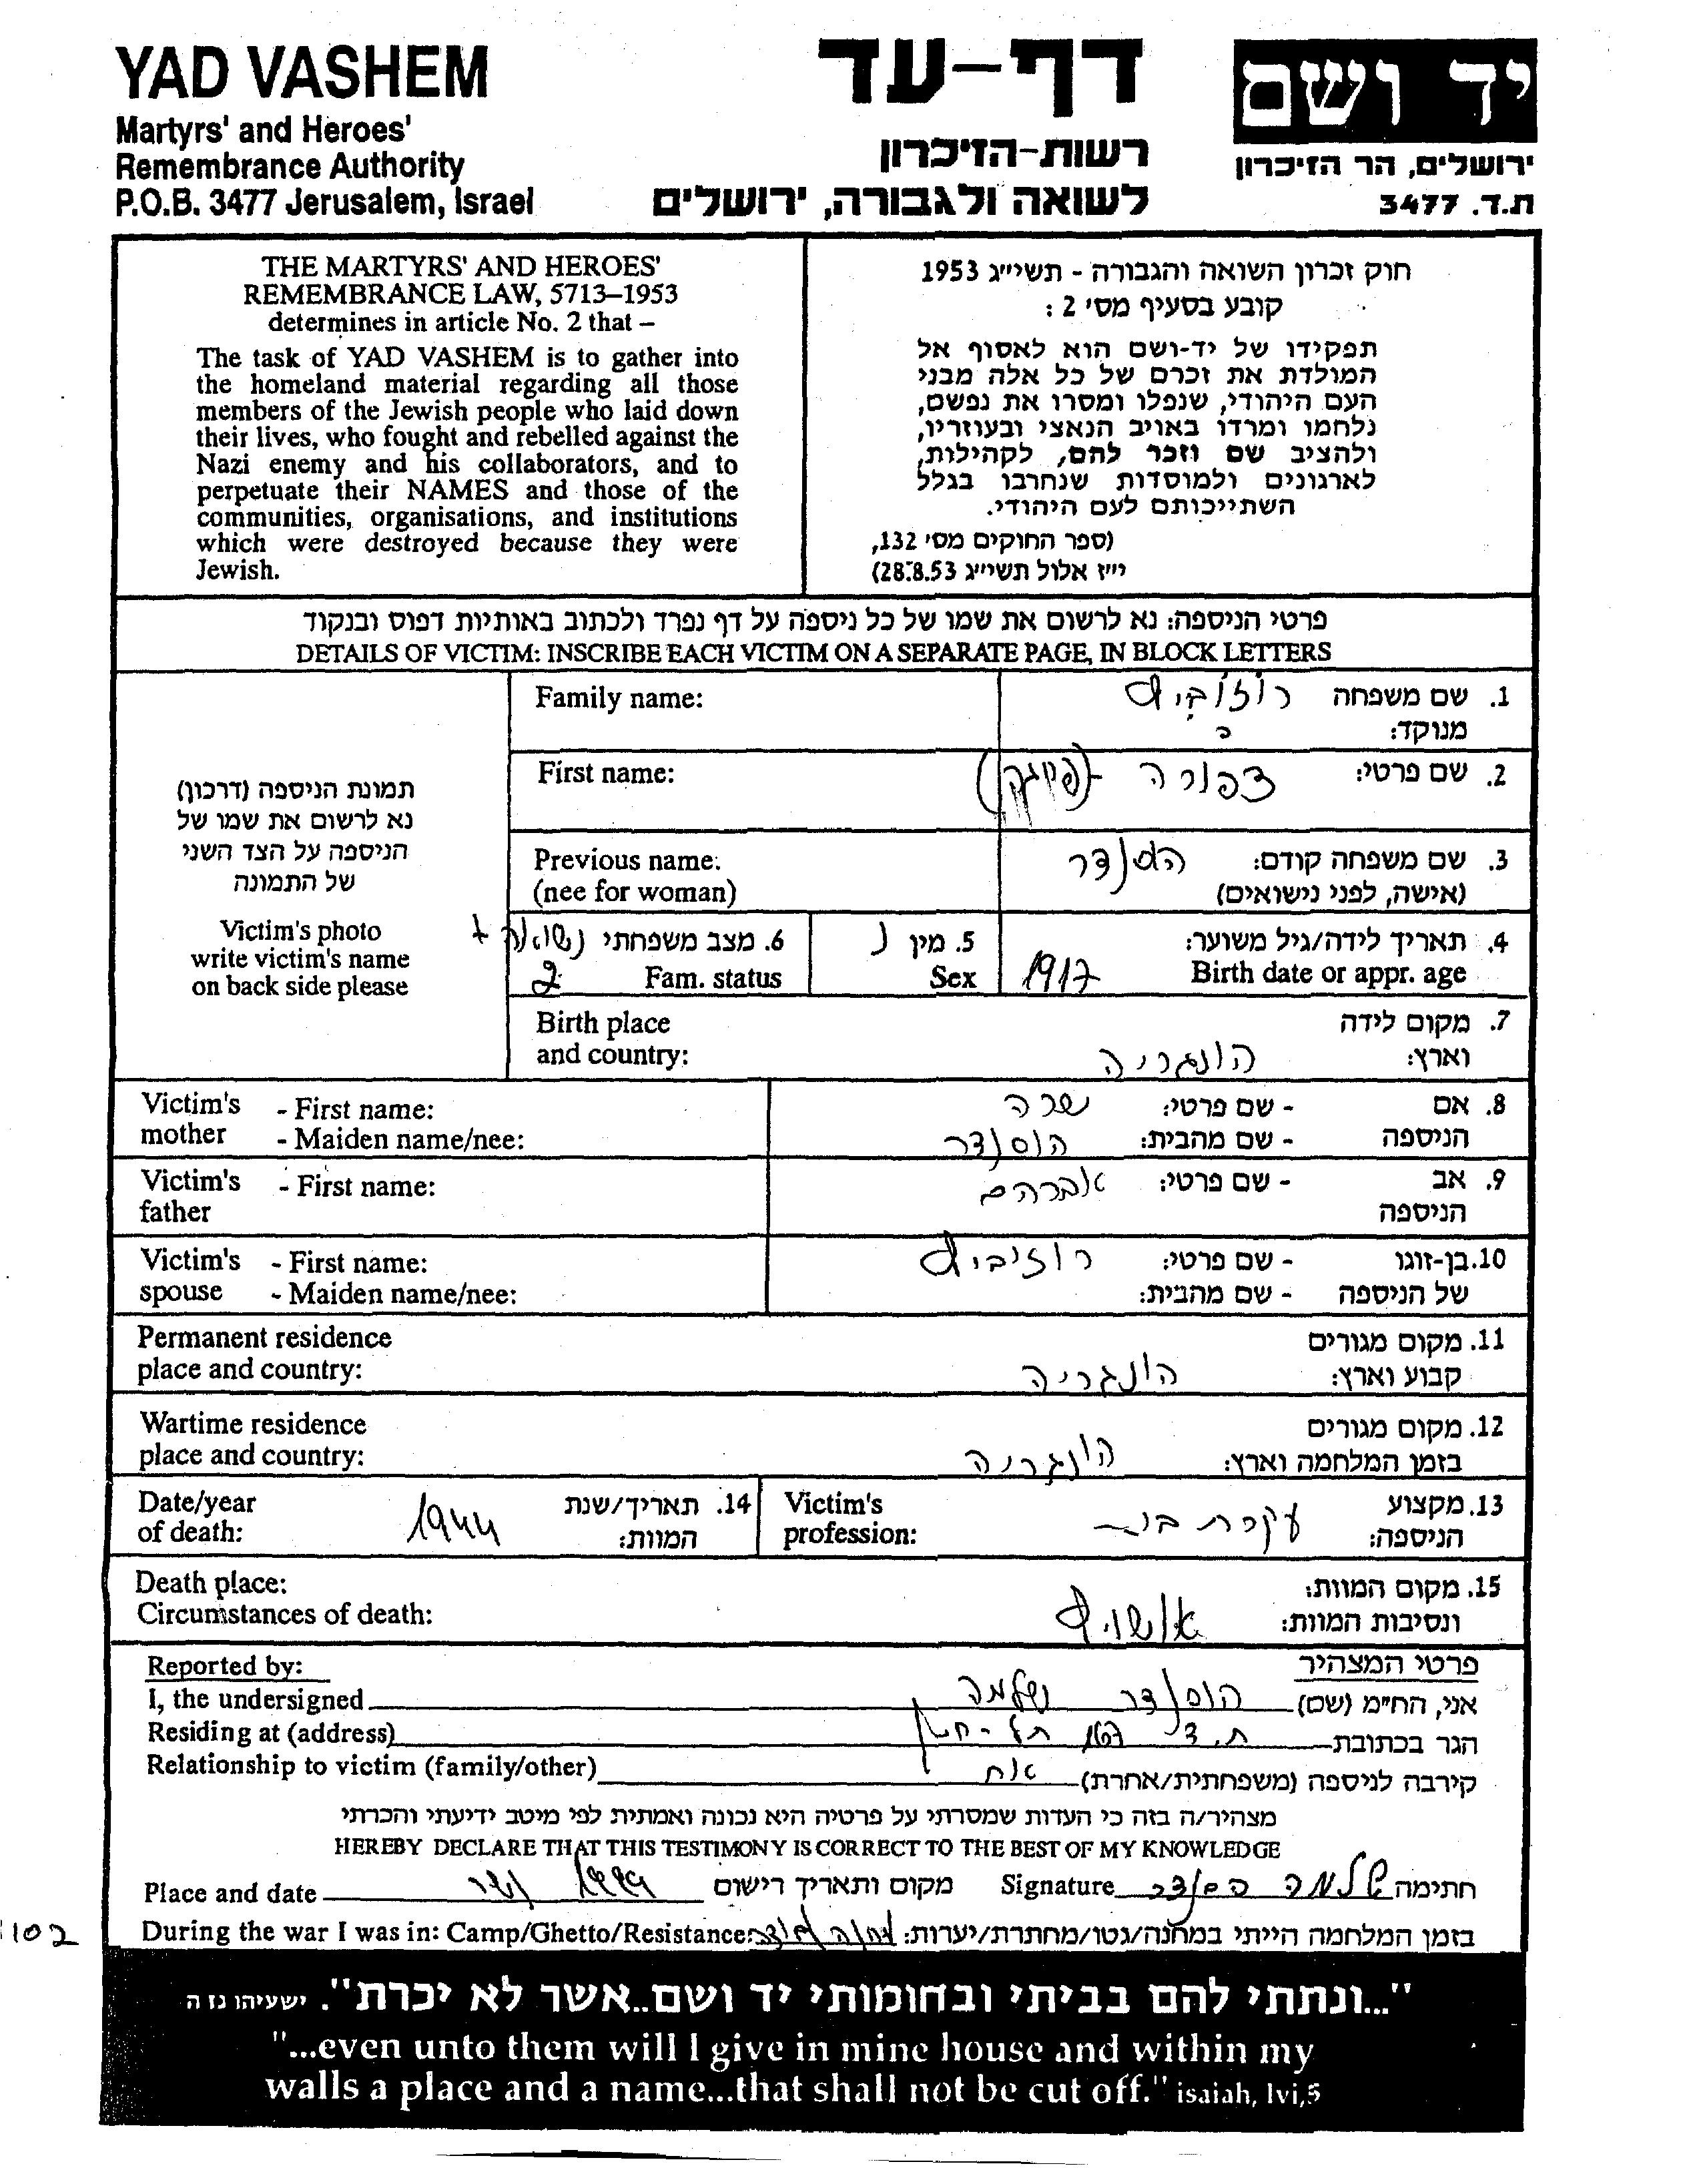 YAD VASHEM
Martyrs' and Heroes'
Remembrance Authority
P.O.B. 3477 Jerusalem, Israel
דף-עד
רשות-הזיכרון
לשואה ולגבורה, ירושלים
יד ושם
ירושלים, הר הזיכרון
ת.ד. 3477
THE MARTYRS' AND HEROES'
REMEMBRANCE LAW, 5713–1953
determines in article No. 2 that –
The task of YAD VASHEM is to gather into
the homeland material regarding all those
members of the Jewish people who laid down
their lives, who fought and rebelled against the
Nazi enemy and his collaborators, and to
perpetuate their NAMES and those of the
communities, organisations, and institutions
which were destroyed because they were
Jewish.
חוק זכרון השואה והגבורה - תשי״ג 1953
קובע בסעיף מס׳ 2 :
תפקידו של יד-ושם הוא לאסוף אל
המולדת את זכרם של כל אלה מבני
העם היהודי, שנפלו ומסרו את נפשם,
נלחמו ומרדו באויב הנאצי ובעוזריו,
ולהציב שם וזכר להם, לקהילות,
לארגונים ולמוסדות שנחרבו בגלל
השתייכותם לעם היהודי.
(ספר החוקים מס׳ 132,
י״ז אלול תשי״ג 28.8.53)
פרטי הניספה: נא לרשום את שמו של כל ניספה על דף נפרד ולכתוב באותיות דפוס ובנקוד
DETAILS OF VICTIM: INSCRIBE EACH VICTIM ON A SEPARATE PAGE, IN BLOCK LETTERS
תמונת הניספה (דרכון)
נא לרשום את שמו של
הניספה על הצד השני
של התמונה
Victim's photo
write victim's name
on back side please
Family name: 1. שם משפחה
מנוקד:
First name: צפורה 2. שם פרטי:
Previous name: הוסנדר 3. שם משפחה קודם:
(nee for woman) (אישה, לפני נישואים)
4. תאריך לידה/גיל משוער: 5. מין נ 6. מצב משפחתי נשואה +
Birth date or appr. age 1917 Sex Fam. status 2
Birth place 7. מקום לידה
and country: הונגריה וארץ:
Victim's - First name: שרה - שם פרטי: 8. אם
mother - Maiden name/nee: הוסנדר - שם מהבית: הניספה
Victim's - First name: אברהם - שם פרטי: 9. אב
father הניספה
Victim's - First name: רוזיביץ - שם פרטי: 10. בן-זוגו
spouse - Maiden name/nee: - שם מהבית: של הניספה
Permanent residence 11. מקום מגורים
place and country: הונגריה קבוע וארץ:
Wartime residence 12. מקום מגורים
place and country: הונגריה בזמן המלחמה וארץ:
Date/year 1944 14. תאריך/שנת Victim's עקרת בית 13. מקצוע
of death: המוות: profession: הניספה:
Death place: 15. מקום המוות:
Circumstances of death: אושויץ ונסיבות המוות:
Reported by: פרטי המצהיר
I, the undersigned הוסנדר שלמה אני, החי״מ (שם)
Residing at (address) ת.ד הגר בכתובת
Relationship to victim (family/other) אח קירבה לניספה (משפחתית/אחרת)
מצהיר/ה בזה כי העדות שמסרתי על פרטיה היא נכונה ואמתית לפי מיטב ידיעתי והכרתי
HEREBY DECLARE THAT THIS TESTIMONY IS CORRECT TO THE BEST OF MY KNOWLEDGE
Place and date 1999 מקום ותאריך רישום Signature שלמה הוסנדר חתימה
1102 During the war I was in: Camp/Ghetto/Resistance: בזמן המלחמה הייתי במחנה/גטו/מחתרת/יערות:
"...ונתתי להם בביתי ובחומותי יד ושם..אשר לא יכרת". ישעיהו נז ה
"...even unto them will I give in mine house and within my
walls a place and a name...that shall not be cut off." isaiah, lvi,5